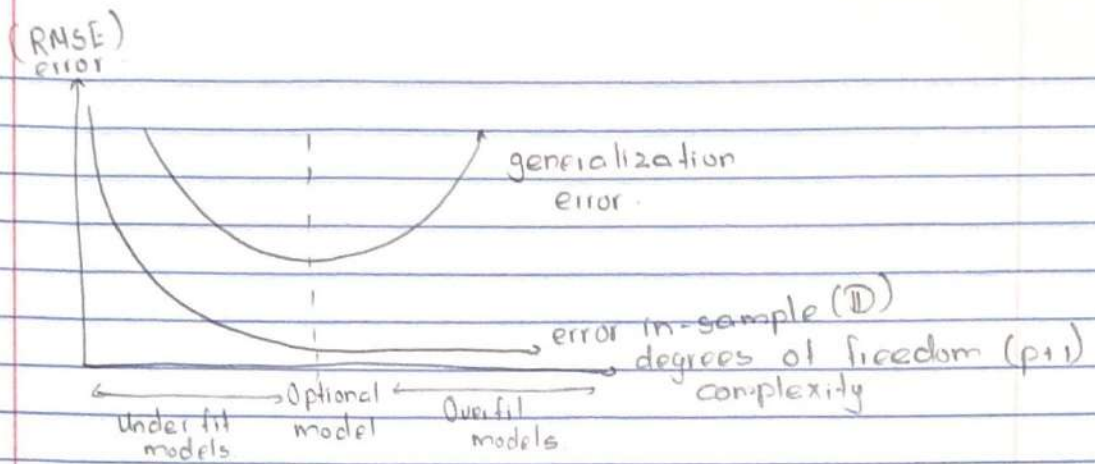 (RMSE)
error
generalization
error.
error in-sample (𝔻)
degrees of freedom (p+1)
complexity
Underfit
models
Optional
model
Overfit
models